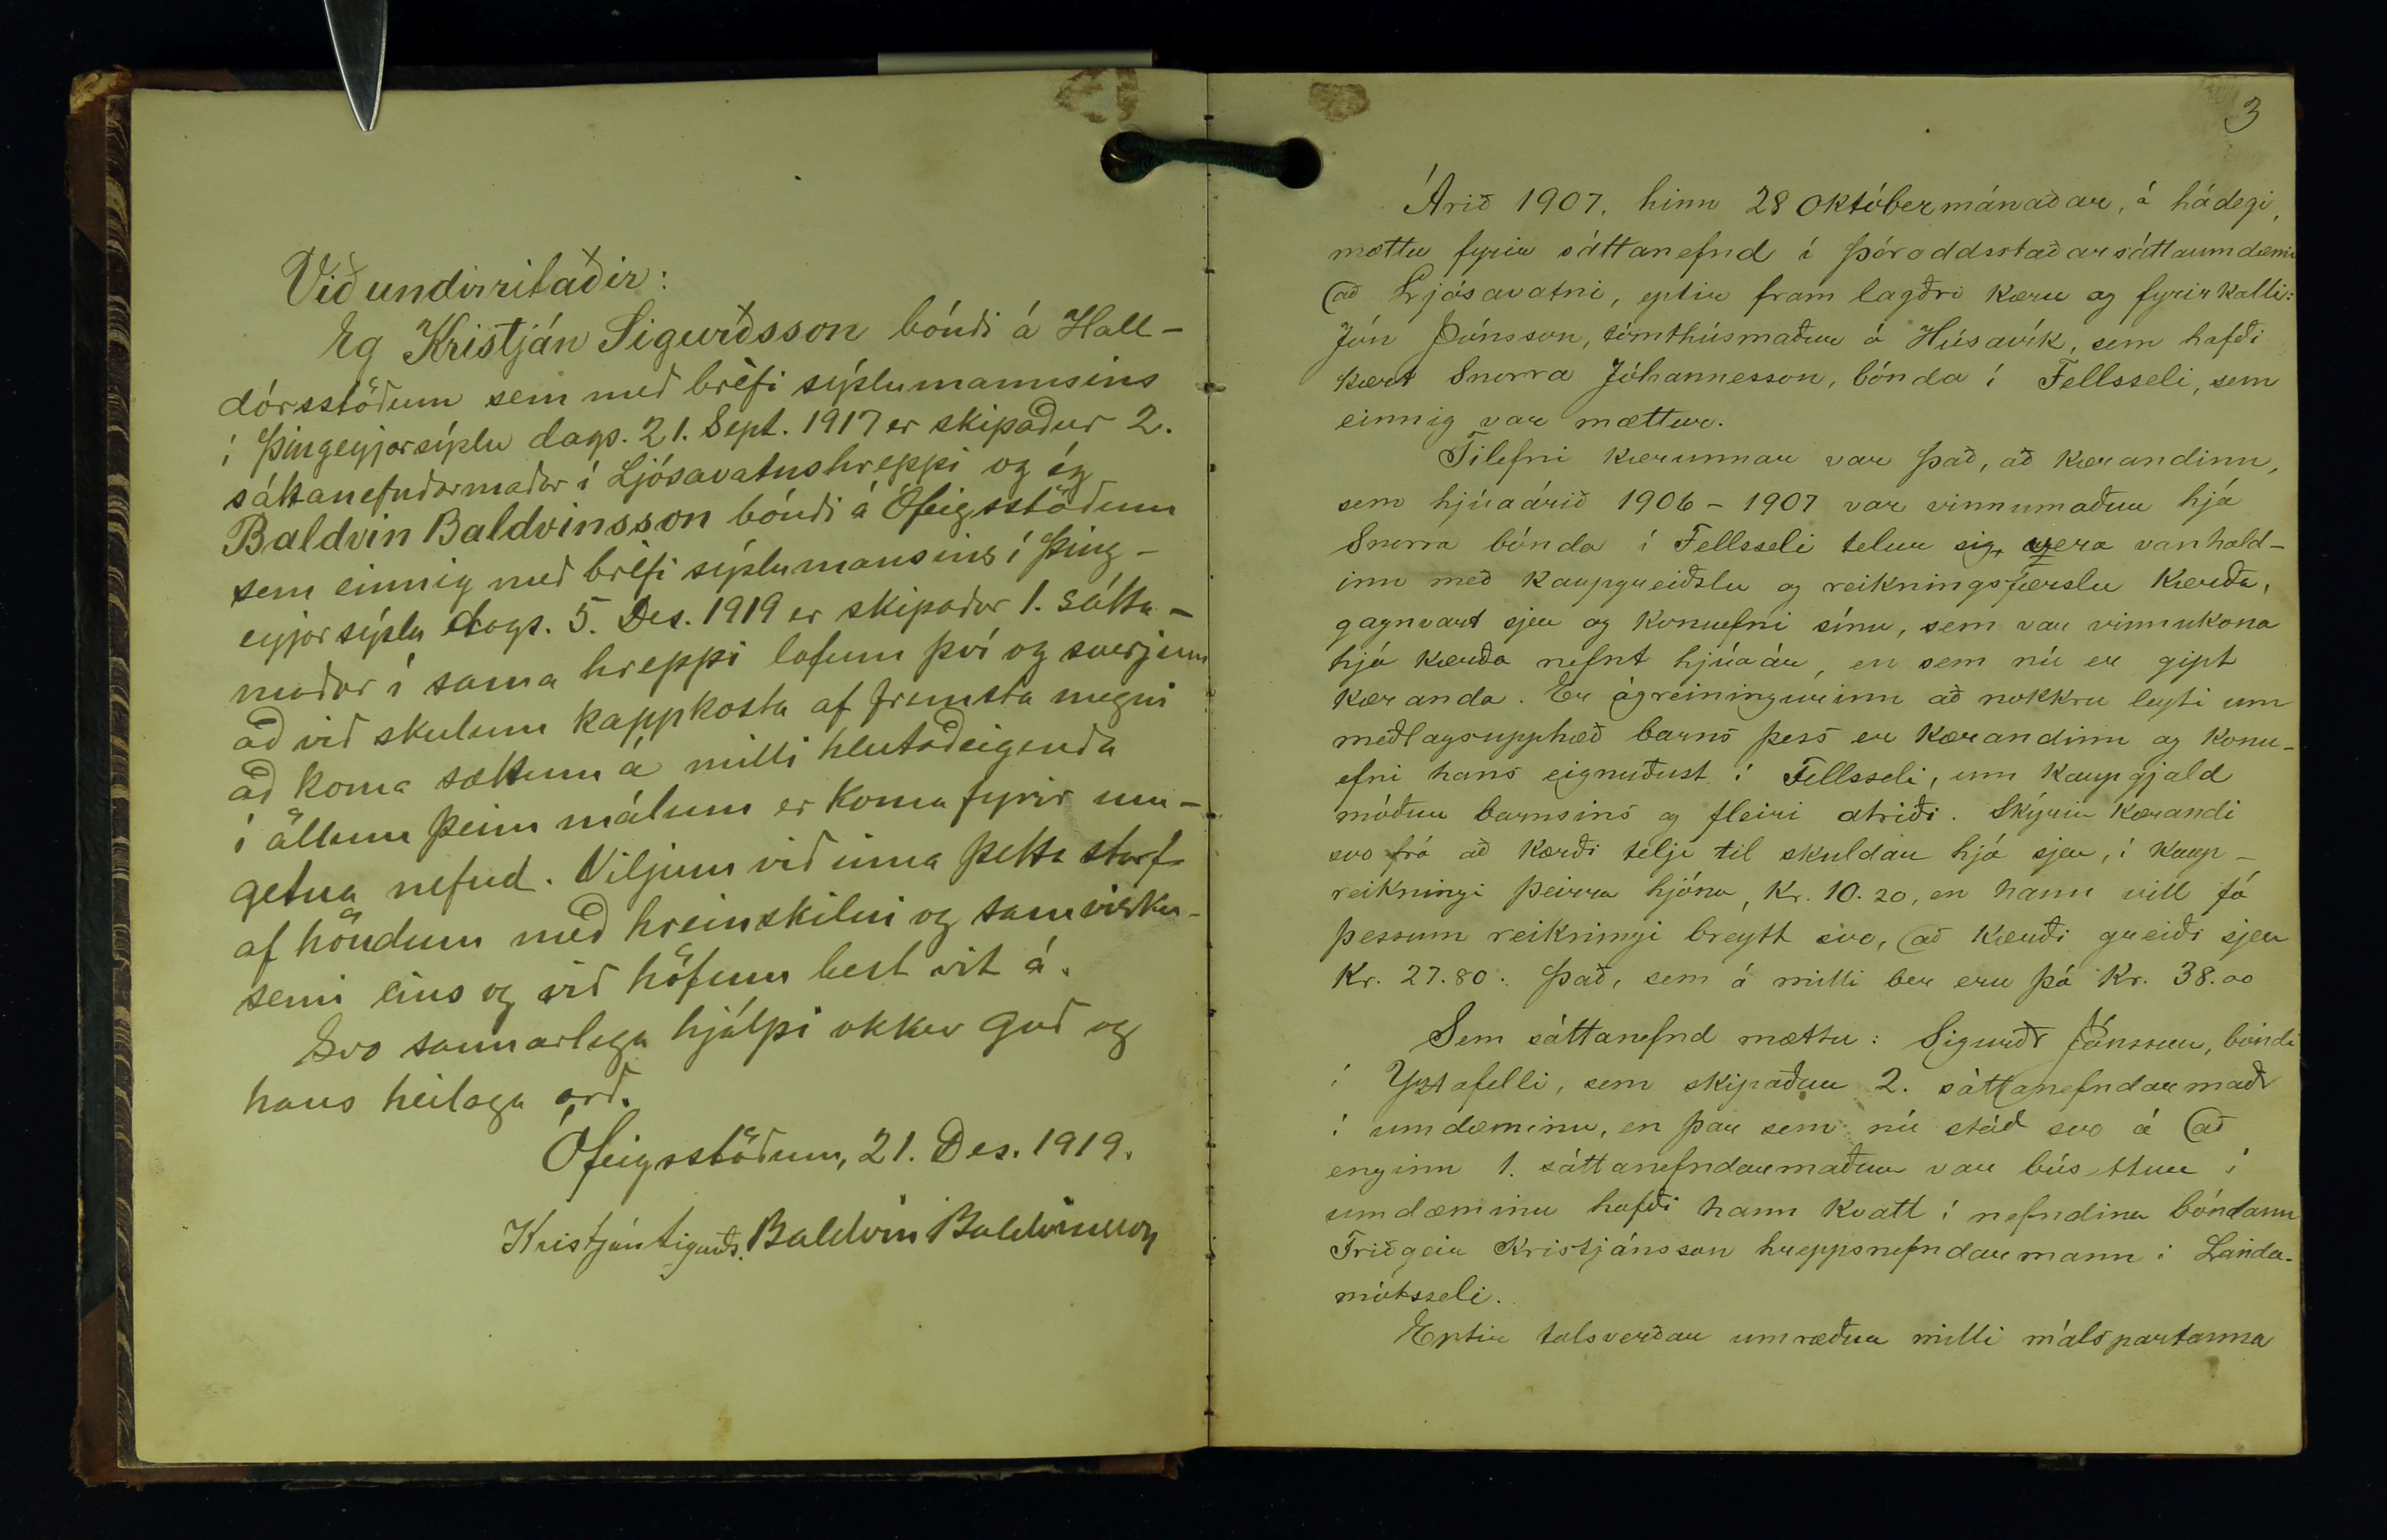 Við undirritaðir:
Eg Kristján Sigurðsson bóndi á Hall-
dórsstöðum sem með bréfi sýslumannsins
í Þingeyjarsýslu dags. 21. Sept. 1917 er skipaður 2.
sáttanefndarmaður í Ljósavatnshreppi og ég
Baldvin Baldvinsson bóndi á Ófeigsstöðum
sem einnig með bréfi sýslumansins í Þing-
eyjarsýslu dags. 5. Des. 1919 er skipaður 1. sátta-
maður í sama hreppi lofum því og sverjum
að við skulum kappkosta af fremsta megni
að koma sáttum á milli hlutaðeigenda
í öllum þeim málum er koma fyrir um-
getna nefnd. Viljum við inna þetta starf
af höndum með hreinskilni og samvisku-
semi eins og við höfum best vit á.
Svo sannarlega hjálpi okkur Guð og
hans heilaga orð.
Ófeigsstöðum, 21. Des. 1919.
Kristján Sigurðs. Baldvin Baldvinsson
3
Árið 1907, hinn 28 októbermánaðar, á hádegi,
mættu fyrir sáttanefnd í Þóroddsstaðarsáttaumdæmi
að Ljósavatni, eptir fram lagðri kæru og fyrirkalli:
Jón Jónsson, tómthúsmaður á Húsavík, sem hafði
kært Snorra Jóhannesson, bónda í Fellsseli, sem
einnig var mættur.
Tilefni kærunnar var það, að kærandinn,
sem hjúaárið 1906-1907 var vinnumaður hjá
Snorra bónda í Fellsseli telur sig vera vanhald-
inn með kaupgreiðslu og reikningsfærslu kærða,
gagnvart sjer og konuefni sínu, sem var vinnukona
hjá kærða nefnt hjúaár, en sem nú er gipt
kæranda. Er ágreiningurinn að nokkru leyti um
meðlagsupphæð barns þess er kærandinn og konu-
efni hans eignuðust í Fellsseli, um kaupgjald
móður barnsins og fleiri atriði. Skýrir kærandi
svo frá að kærði telji til skuldar hjá sjer, í kaup-
reikningi þeirra hjóna, Kr. 10.20, en hann vill fá
þessum reikningi breytt svo, að kærði greiði sjer
Kr. 27.80. Það, sem á milli ber eru þá Kr. 38.00
Sem sáttanefnd mættu: Sigurðr Jónsson, bóndi
í Yztafelli, sem skipaður 2. sáttanefndarmaðr
í umdæminu, en þar sem nú stóð svo á að
enginn 1. sáttanefndarmaður var búsettur í
umdæminu hafði hann kvatt í nefndina bóndann
Friðgeir Kristjánsson hreppsnefndarmann í Landa-
mótsseli.
Eptir talsverðar umræður milli málspartanna